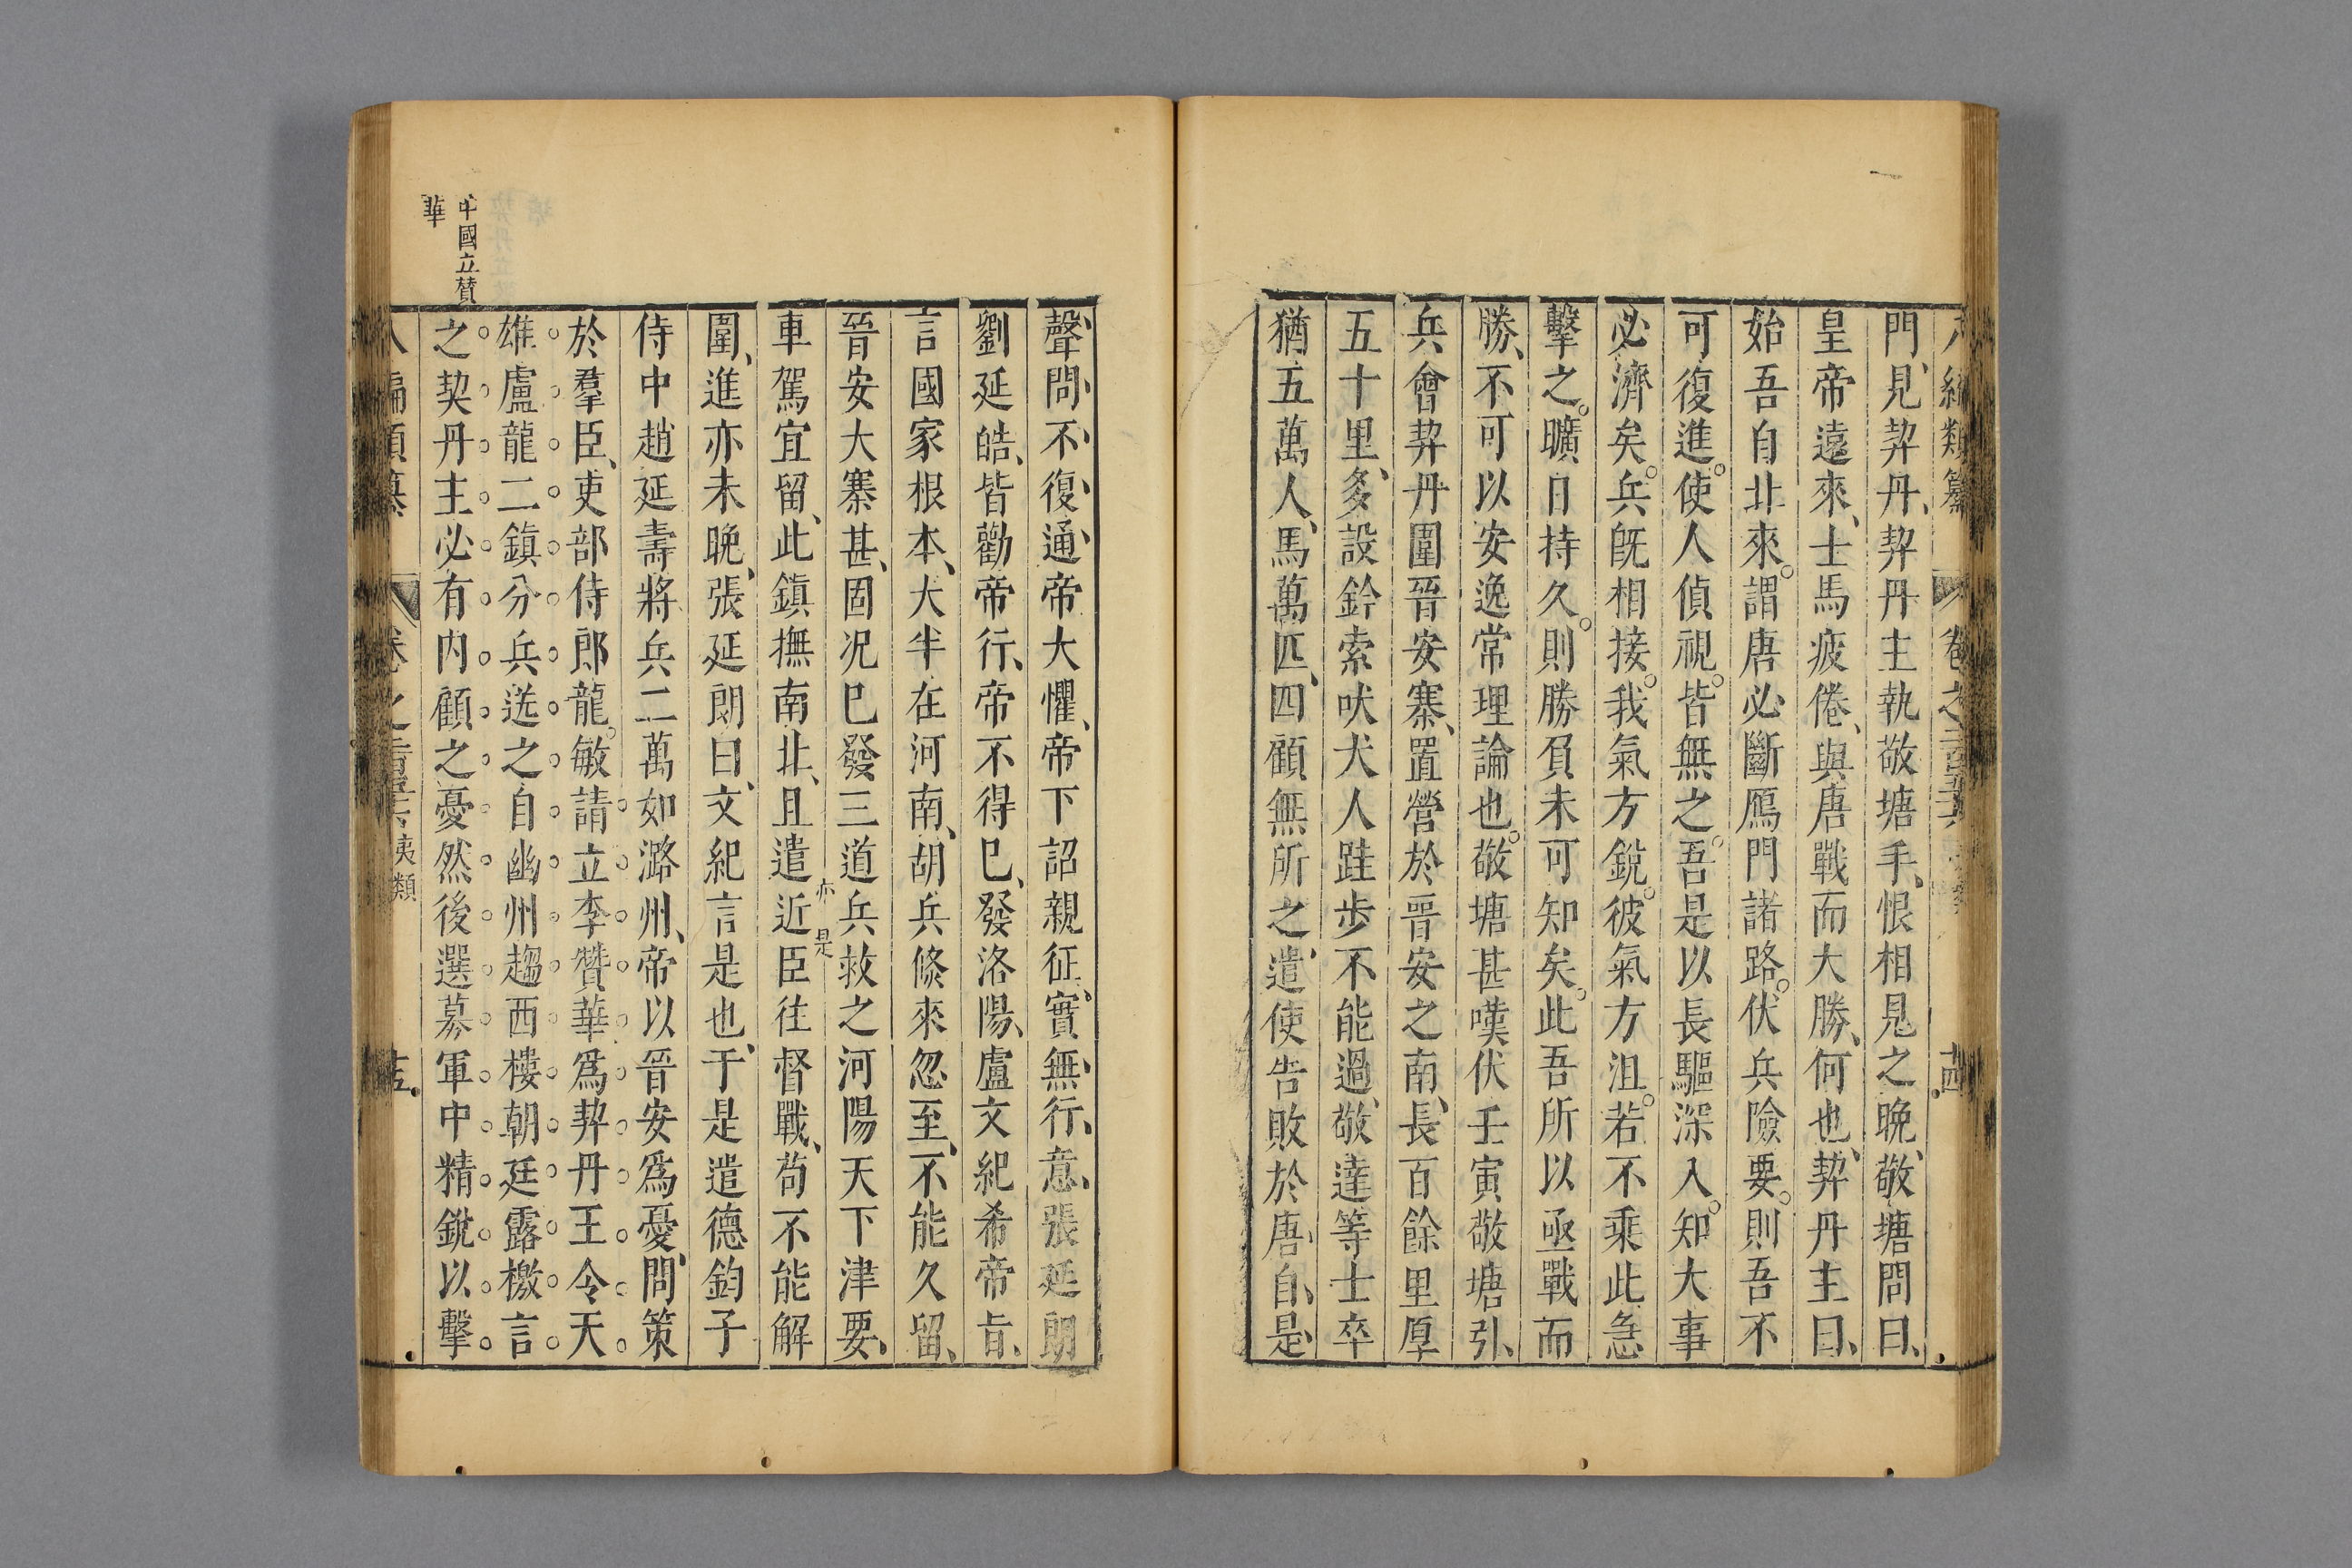 門、見契丹、契丹主執敬塘手、恨相見之晚、敬塘問曰、
皇帝遠來、士馬疲倦、與唐戰而大勝、何也、契丹主曰、
始吾自北來。謂唐必斷鴈門諸路。伏兵險要。則吾不
可復進。使人偵視。皆無之。吾是以長驅深入。知大事
必濟矣。兵旣相接。我氣方銳。彼氣方沮。若不乘此急
擊之。曠日持久。則勝負未可知矣。此吾所以亟戰而
勝、不可以安逸常理論也。敬塘甚嘆伏壬寅敬塘引、
兵會契丹圍晉安寨、置營於晋安之南、長百餘里厚
五十里、多設鈴索吠犬人跬步不能過、敬達等士卒
猶五萬人、馬萬匹、四顧無所之、遣使告敗於唐、自、是、
聲、問、不、復、通、帝大懼、帝下詔親征、實、無、行、意、張延朗
劉延皓、皆勸帝行、帝不得已、發洛陽、盧文紀希帝旨、
言國家根本、大半在河南、胡兵倐來忽至、不能久留、
晉安大寨甚、固况已發三道兵救之河陽天下津要、
車駕宜留、此鎮撫南北、且遣近臣往督戰、苟不能解
亦是
圍、進亦未晚、張延朗曰、文紀言是也、于是遣德鈞子
侍中趙延壽將兵二萬如潞州、帝以晉安爲憂、問策
於羣臣、吏部侍郎龍。敏請立李贊華爲契丹王令天
雄盧龍二鎮分兵送之自幽州趨西樓朝廷露檄言
之契丹主必有內顧之憂然後選募軍中精銳以擊
中國立贊
華
夷類